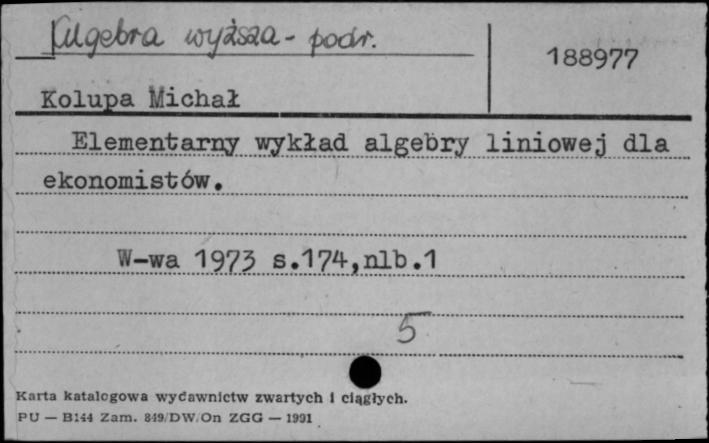 Algebra wyższa - podr.
188977
Kolupa Michał
Elementarny wykład algebry liniowej dla
ekonomistów.
W-wa 1973 s.174,nlb.1
5
Karta katalogowa wydawnictw zwartych i ciągłych.
PU — B144 Zam. 849/DW/On ZGG — 1991